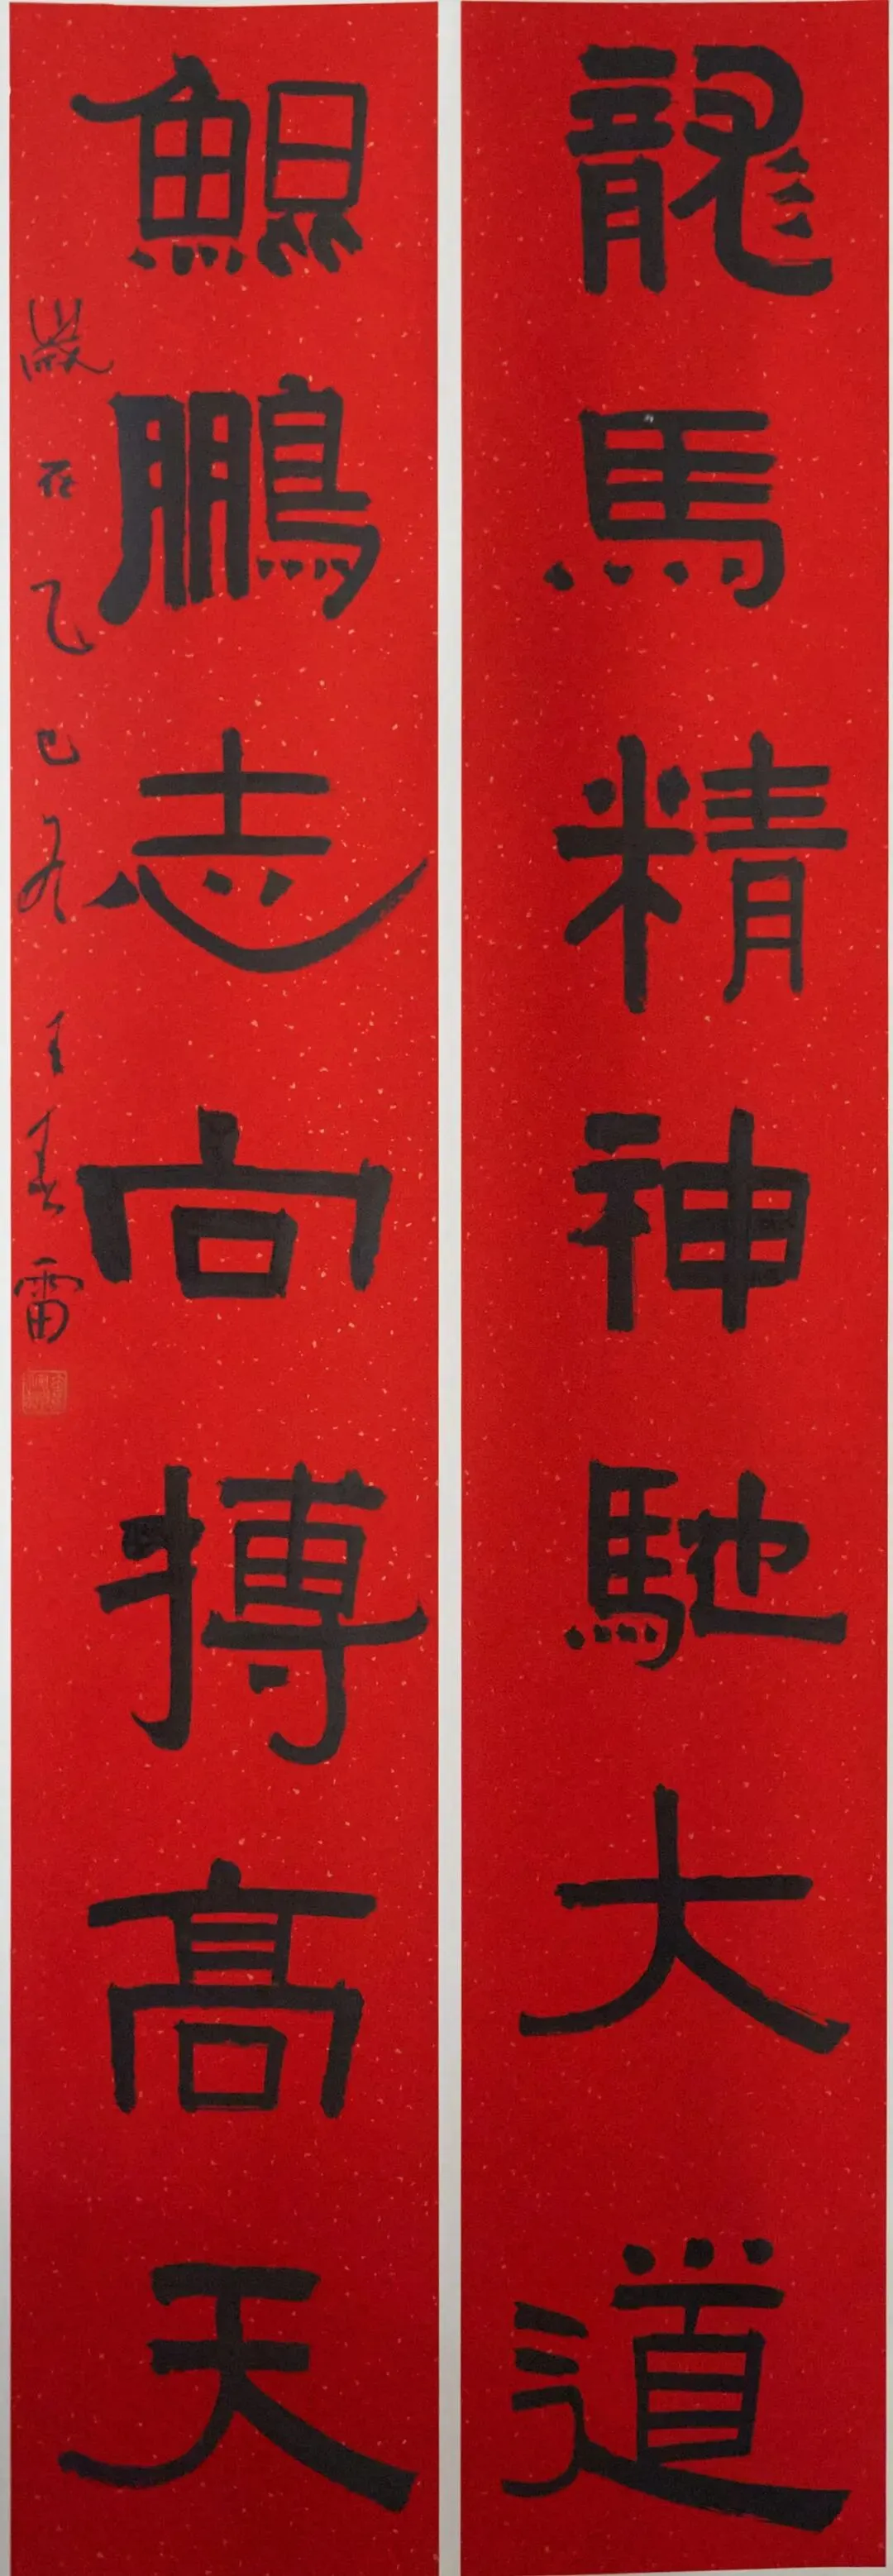 龍馬精神馳大道
鯤鵬志向搏高天
歲在乙巳冬王春雷